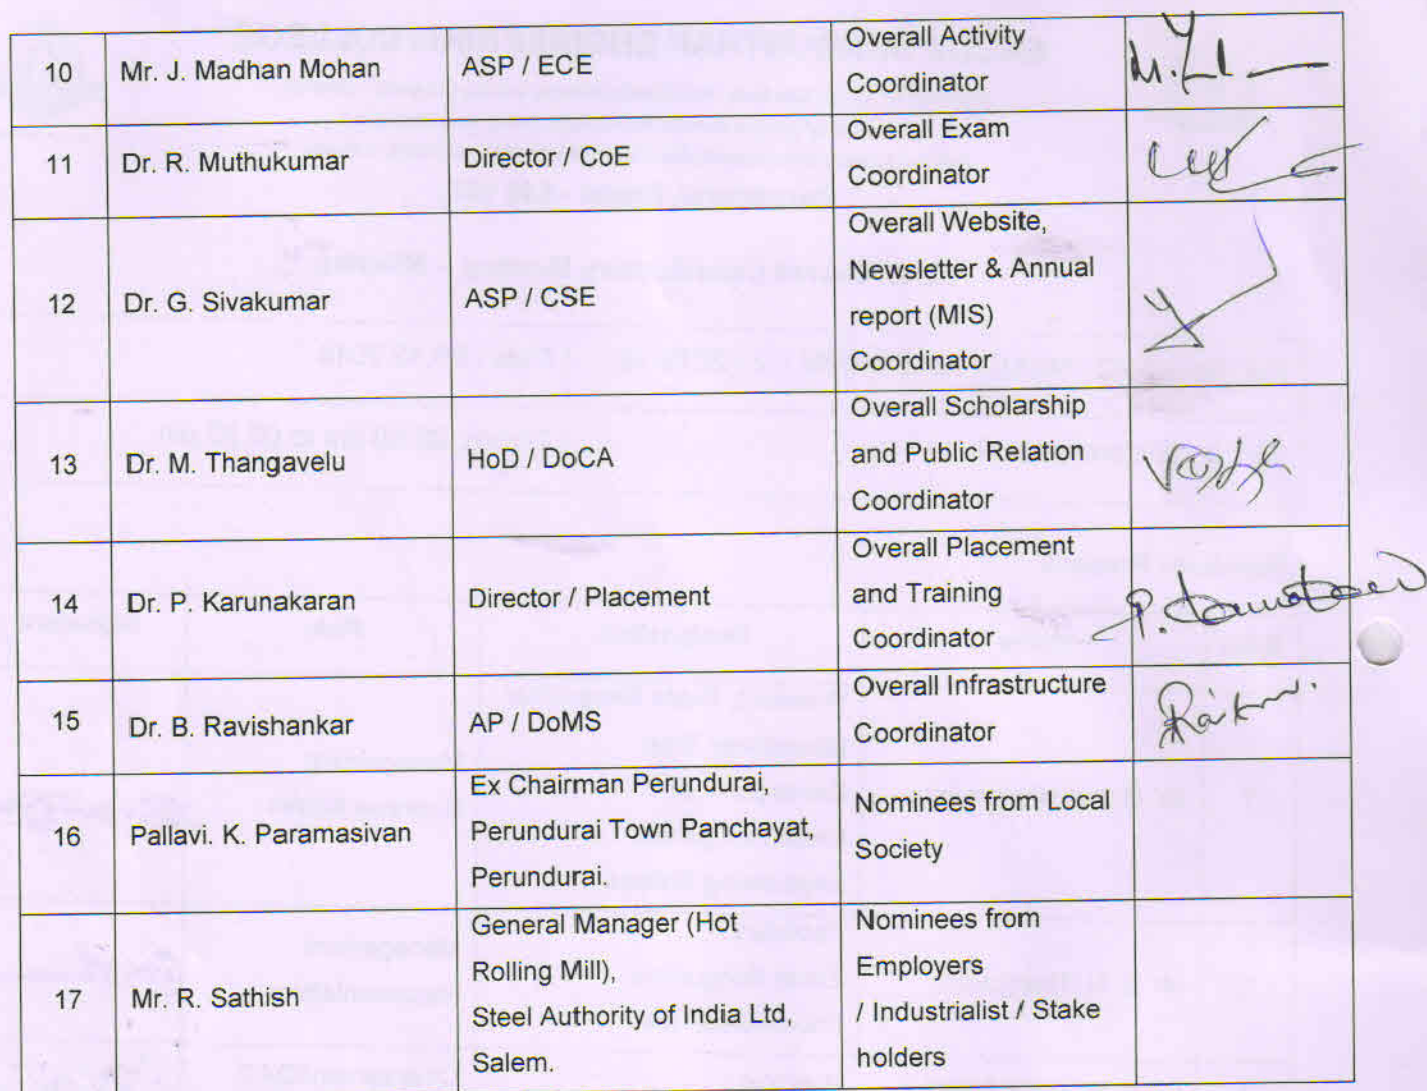 10 Mr. J. Madhan Mohan ASP / ECE Overall Activity
Coordinator
11 Dr. R. Muthukumar Director / CoE Overall Exam
Coordinator
12 Dr. G. Sivakumar ASP / CSE Overall Website,
Newsletter & Annual
report (MIS)
Coordinator
13 Dr. M. Thangavelu HoD / DoCA Overall Scholarship
and Public Relation
Coordinator
14 Dr. P. Karunakaran Director / Placement Overall Placement
and Training
Coordinator
15 Dr. B. Ravishankar AP / DoMS Overall Infrastructure
Coordinator
16 Pallavi. K. Paramasivan Ex Chairman Perundurai,
Perundurai Town Panchayat,
Perundurai.
Nominees from Local
Society
17 Mr. R. Sathish General Manager (Hot
Rolling Mill),
Steel Authority of India Ltd,
Salem.
Nominees from
Employers
/ Industrialist / Stake
holders